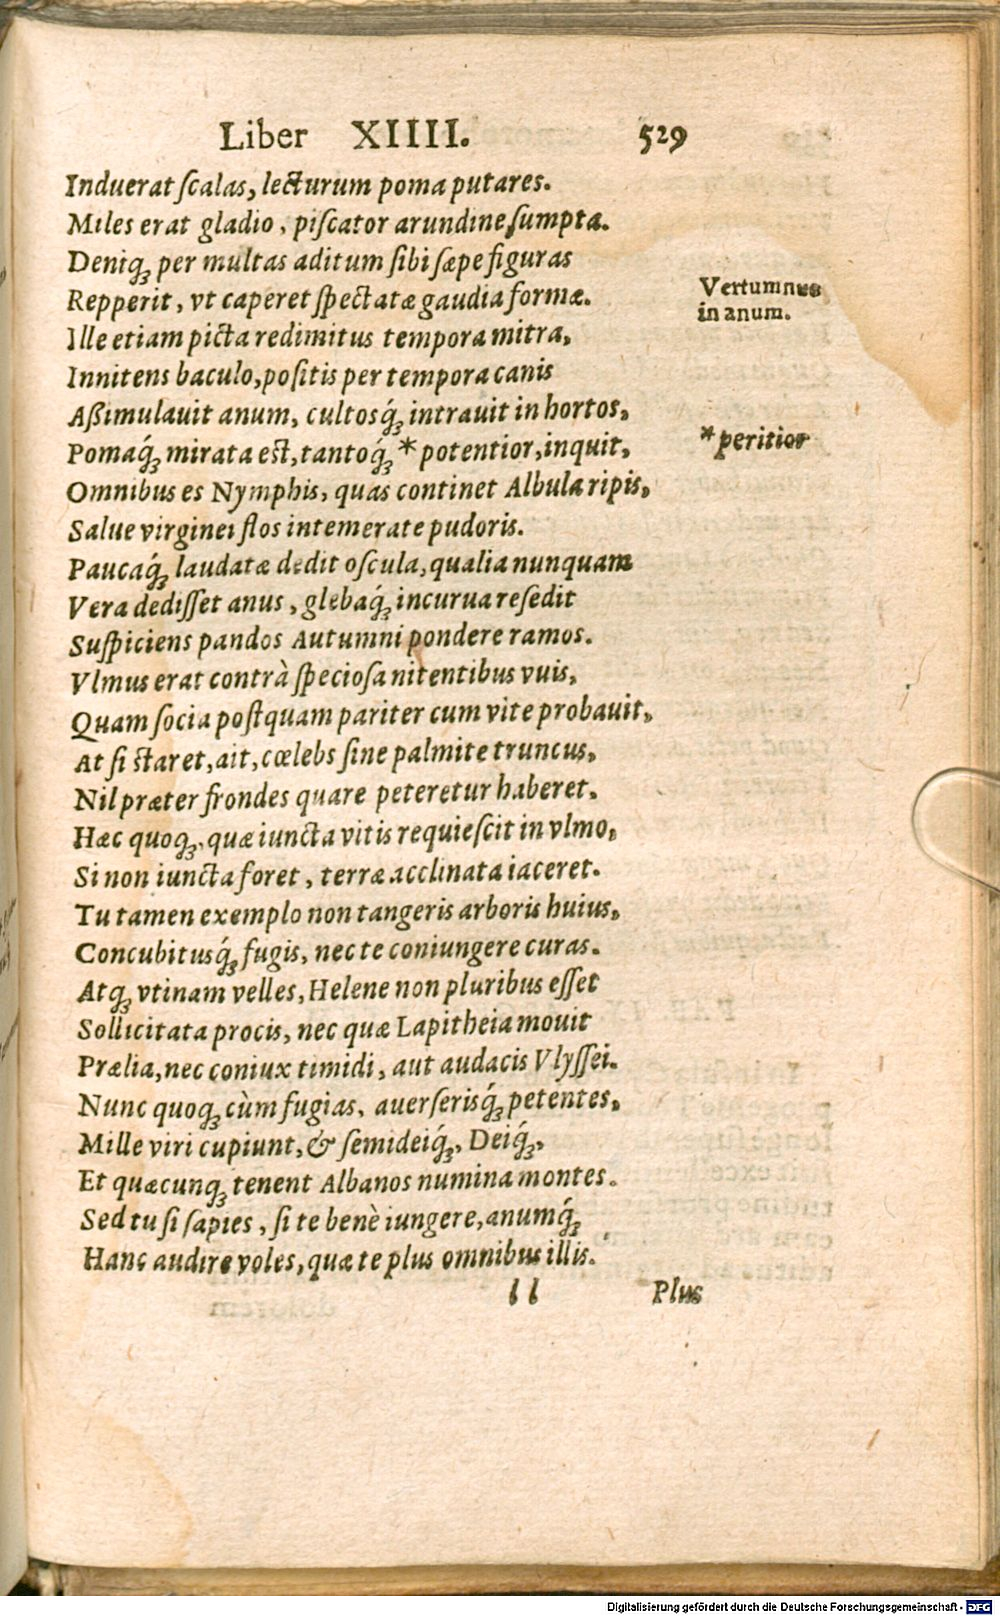 Liber XIIII. 529
Induerat ſcalas, lecturum poma putares.
Miles erat gladio, piſcator arundine ſumpta.
Deniq; per multas aditum ſibi ſæpe figuras
Repperit, vt caperet ſpectatæ gaudia formæ.
Vertumnus
in anum.
Ille etiam picta redimitus tempora mitra,
Innitens baculo, poſitis per tempora canis
Aßimulauit anum, cultosq́; intrauit in hortos,
Pomaq́; mirata est, tantoq́; * potentior, inquit,
* peritior
Omnibus es Nymphis, quas continet Albula ripis,
Salue virginei flos intemerate pudoris.
Paucaq́; laudatæ dedit oſcula, qualia nunquam
Vera dediſſet anus, glebaq́; incurua reſedit
Suſpiciens pandos Autumni pondere ramos.
Vlmus erat contrà ſpecioſa nitentibus vuis,
Quam ſocia poſtquam pariter cum vite probauit,
At ſi staret, ait, cœlebs ſine palmite truncus,
Nil præter frondes quare peteretur haberet.
Hæc quoq;, quæ iuncta vitis requieſcit in vlmo,
Si non iuncta foret, terræ acclinata iaceret.
Tu tamen exemplo non tangeris arboris huius,
Concubitusq́; fugis, nec te coniungere curas.
Atq; vtinam velles, Helene non pluribus eſſet
Sollicitata procis, nec quæ Lapitheia mouit
Prælia, nec coniux timidi, aut audacis Vlyſſei.
Nunc quoq; cùm fugias, auerſerisq́; petentes,
Mille viri cupiunt, & ſemideiq́;, Deiq́;,
Et quæcunq; tenent Albanos numina montes.
Sed tu ſi ſapies, ſi te benè iungere, anumq́;
Hanc audire voles, quæ te plus omnibus illis.
ll Plus
Digitalisierung gefördert durch die Deutsche Forschungsgemeinschaft - DFG